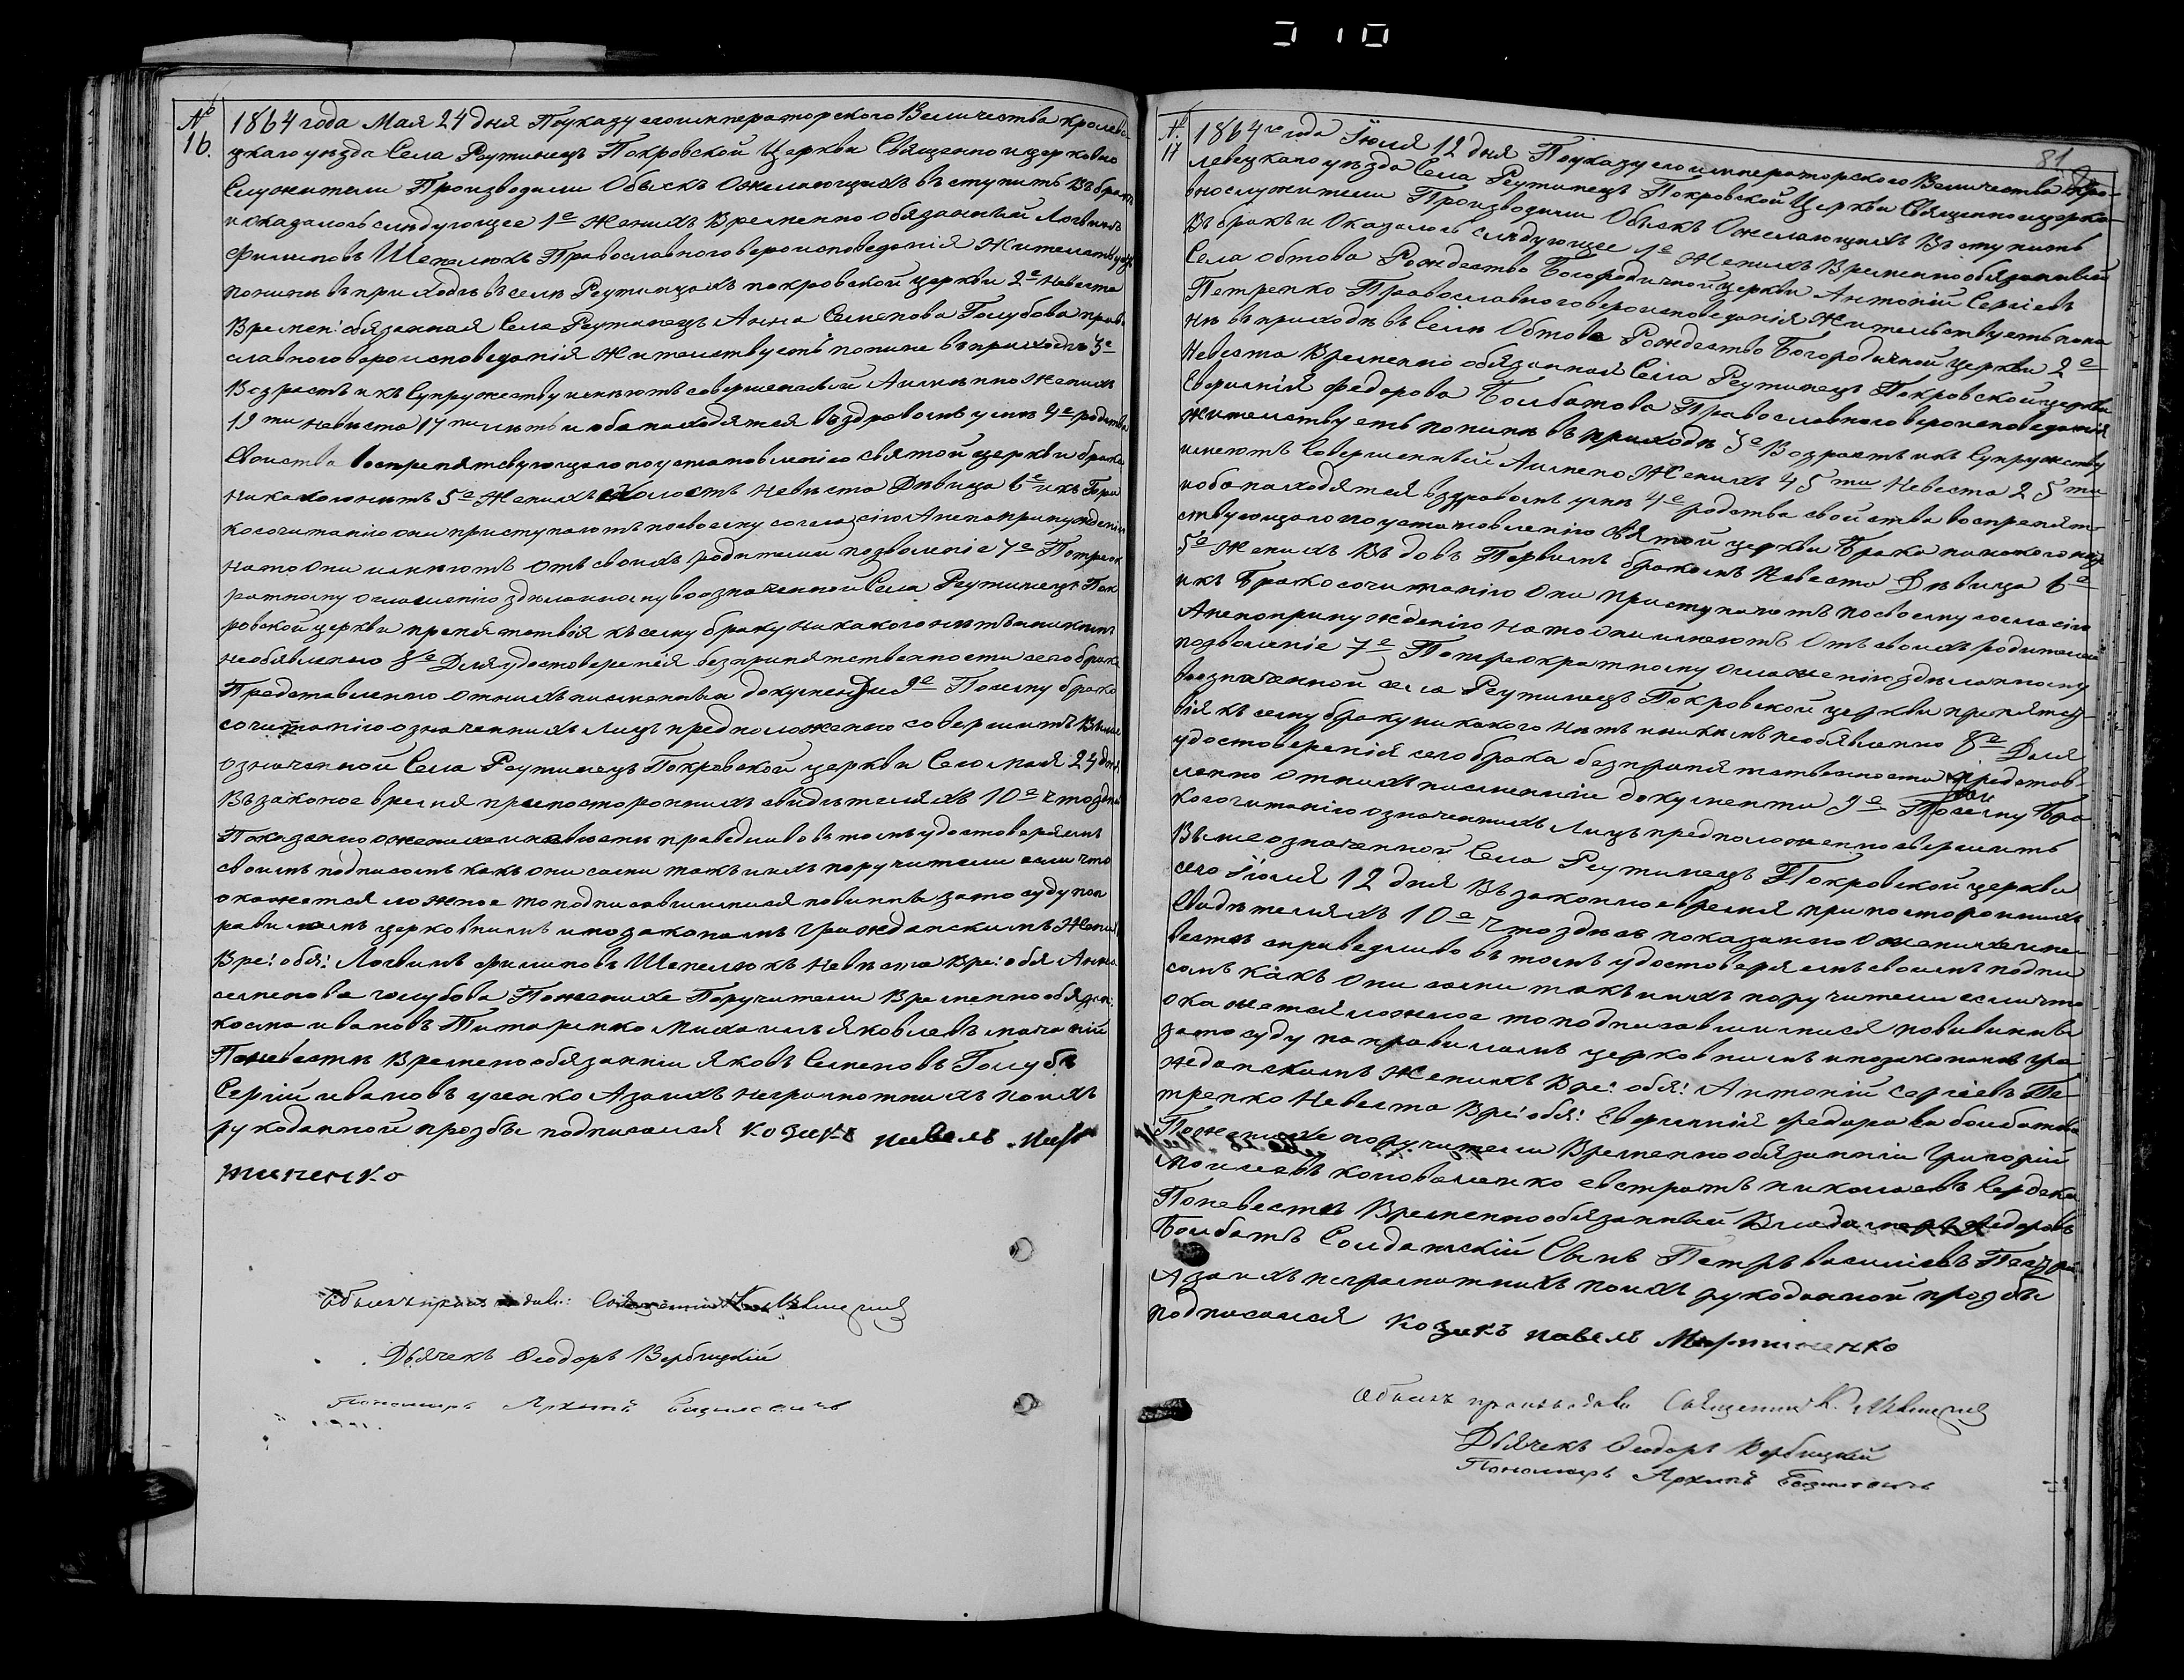 № 16.
1864 года Мая 24 дня По указу его императорского Величества Кролеве-
цкаго уезда Села Реутинец Покровской Церкви Священно и церковно
Служители Производили Обыскъ Ожелающихъ въступить Въ бракъ
и оказалось слѣдующее 1е Женихъ Временно обязанный Логвинъ
Филиповъ Шепелюкъ Православнаго вероисповеданія Жительствуетъ
понинѣ въ приходѣ въ селѣ Реутинцахъ покровской церкви 2е Невеста
Времен: обязанная Села Реутинецъ Анна Семенова Голубова право
славного вероисповеданія Жительствуетъ понине въ приходѣ 3е
Возрастъ и къ Супружеству имеютъ совершенный Аименно Женихъ
19ти невѣста 17ти лѣтъ и оба находятся въ здравомъ уме 4е родства
Свойства воспрепятвующаго по установленію святой церкви брака
никакого нѣтъ 5е Женихъ Холостъ Невѣста Дѣвица 6е и къ Брако
косочитанію они приступаютъ по своему согласію Анепопринужденію
на то Они имеютъ отъ своихъ родителей позволеніе 7е Потреок
ратному оглашенію зделанному воозначенной Села Реутинецъ Пок
ровской церкви препятствія къ сему браку никакого нѣтъ и никимъ
необявленно 8е Для удостоверенія безпрепятственности сего брака
Представленно отнихъ писменныи документи 9е Посему брако
сочитанію означенныхъ лицъ предположенно совершитъ Выше
означенной Села Реутинецъ Покровской церкви Сего мая 24 дня
Въ законое время припосторонихъ свидѣтеляхъ 10е Что здесь
Показанно о женихе и невѣсти праведливо въ томъ удостоверяемъ
своимъ подписомъ какъ они сами такъ и ихъ поручители если что
окажется ложное то подписавшиися повинны зато суду поп
равиламъ церковнимъ и по законамъ гражданскимъ Жених
Вре: обя: Логвинъ Филиповъ Шепелюкъ Невѣста Вре: обя Анна
семенова голубова Поженихе Поручители Временно обязан:
косма ивановъ Титаренко Михаилъ яковлевъ
Поневестѣ Временно обязаннии Яковъ Семеновъ Голубъ
Сергій ивановъ усенко Азаихъ неграмотнихъ поихъ
рукоданной прозбы подписался козакъ павелъ Мар
тиненко
Обыскъ производили: Священник
Дьячекъ Ѳеодоръ Вербицкій
Пономарь Архипъ Базилевичъ
81
№ 17
1864го года Іюля 12 дня По указу его императорского Величества Кро-
левецкаго уѣзда Села Реутинецъ Покровской Церкви Священно и церко-
вно служители Производили Обыскъ Ожелающихъ Въступить
Въ бракъ и Оказалось слѣдующее 1е Женихъ Временно обязанный
Села обтова Рождество Богородичной церкви Антоній Сергіевъ
Петренко Православного вероисповеданія Жительствуетъ пони
нѣ въ приходѣ въ Селѣ Обтове Рождество Богородичной Церкви 2е
Невеста Временно обязанная Села Реутинецъ Покровской церкви
Евфимія Федорова Болботова Православного вероисповеданія
жительствуетъ понинѣ въ приходѣ 3е Возрастъ и къ Супружеству
имеютъ Совершенный Аимено Женихъ 45ти Невеста 25ти
и оба находятся въ здравомъ умѣ 4е родства свойства воспрепят-
ствующаго по установленію Святой церкви Брака никакого нѣтъ
5е Женихъ Вдовъ Первымъ бракомъ Невеста Дѣвица 6е
и къ Бракосочитанію Они приступаютъ по своему согласію
Анепопринужденію на то Они имеютъ Отъ своихъ родителей
позволеніе 7е Потреократному оглашенію зделанному
воозначенной села Реутинецъ Покровской церкви препятст-
вія къ сему браку никакого нѣтъ никимъ необявленно 8е Для
удостоверенія сего брака безприпятственности представ-
ленно отнихъ писменніи документи 9е Посему Бра
косочитанію означенныхъ Лицъ предположенно совершить
Вышеозначенной Села Реутинецъ Покровской церкви
сего Іюля 12 дня Въ законное время при посторонихъ
Свидѣтеляхъ 10е Что здѣсь показанно О женихе и не
вестѣ справедливо въ томъ удостоверяемъ своимъ подпи
сомъ какъ Они сами такъ и ихъ поручители если что
окажется ложное то подписавшиися повинны
зато суду поправиламъ церковнимъ и позаконамъ гра
жданскимъ Женихъ Вре: обя: Антоній Сергіевъ Пе-
тренко Невеста Вре: обя: Федорова болботова
Поженихе поручители Временно обязанніи Григорій
Моисеевъ коноваленко евстратъ николаевъ Сердюк
Поневестѣ Временно обязанный Федоровъ
Болботъ Солдатскій Сынъ Петръ васильевъ
Азаихъ неграмотнихъ поихъ рукоданной прозбы
подписался козакъ павелъ Мартиненко
Обыскъ производили Священник
Дьячекъ Ѳеодоръ Вербицкій
Пономарь Архипъ Базилевичъ